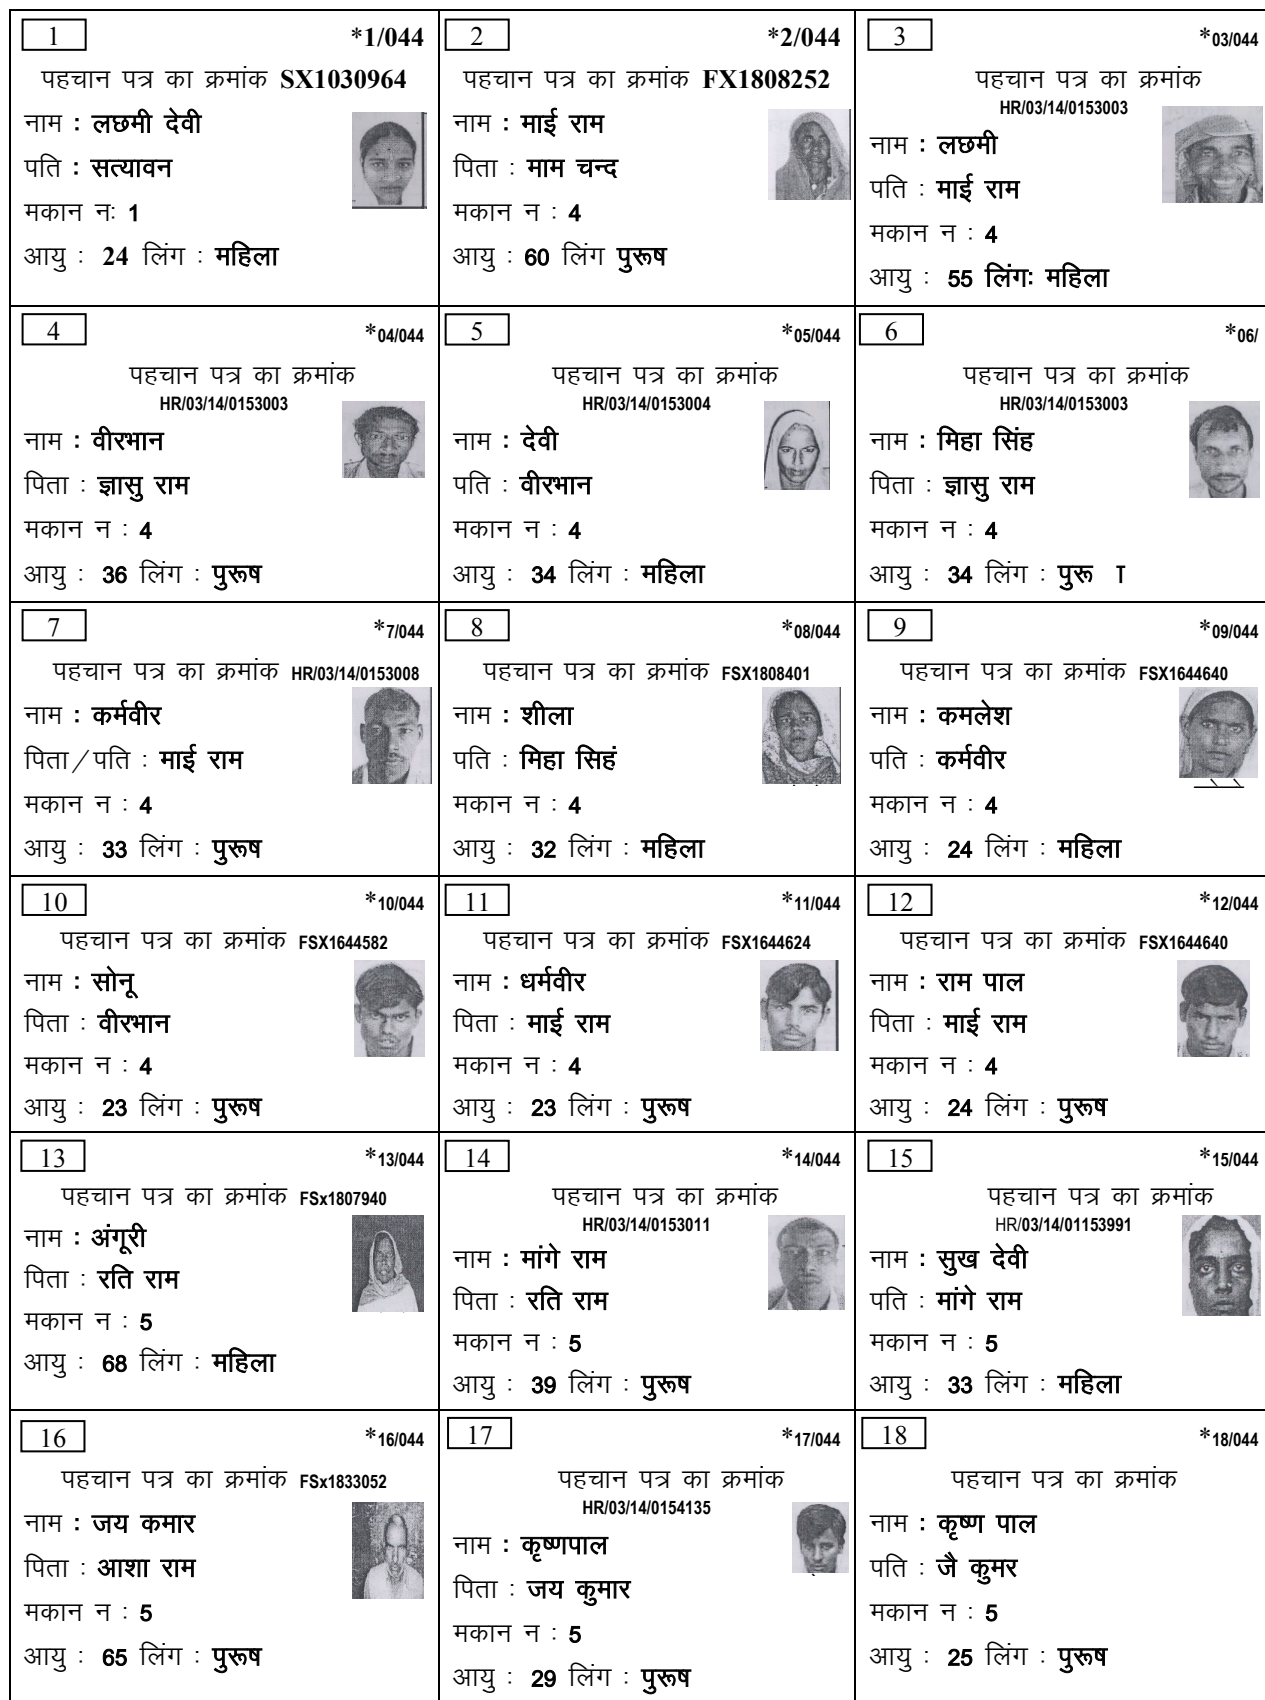 1 *1/044
पहचान पत्र का क्रमांक SX1030964
नाम : लछमी देवी
पति : सत्यावन
मकान नः 1
आयु : 24 लिंग : महिला
2 *2/044
पहचान पत्र का क्रमांक FX1808252
नाम : माई राम
पिता : माम चन्द
मकान न : 4
आयु : 60 लिंग पुरूष
3 *03/044
पहचान पत्र का क्रमांक
HR/03/14/0153003
नाम : लछमी
पति : माई राम
मकान न : 4
आयु : 55 लिंगः महिला
4 *04/044
पहचान पत्र का क्रमांक
HR/03/14/0153003
नाम : वीरभान
पिता : ज्ञासु राम
मकान न : 4
आयु : 36 लिंग : पुरूष
5 *05/044
पहचान पत्र का क्रमांक
HR/03/14/0153004
नाम : देवी
पति : वीरभान
मकान न : 4
आयु : 34 लिंग : महिला
6 *06/
पहचान पत्र का क्रमांक
HR/03/14/0153003
नाम : मिहा सिंह
पिता : ज्ञासु राम
मकान न : 4
आयु : 34 लिंग : पुरू ा
7 *7/044
पहचान पत्र का क्रमांक HR/03/14/0153008
नाम : कर्मवीर
पिता/पति : माई राम
मकान न : 4
आयु : 33 लिंग : पुरूष
8 *08/044
पहचान पत्र का क्रमांक FSX1808401
नाम : शीला
पति : मिहा सिहं
मकान न : 4
आयु : 32 लिंग : महिला
9 *09/044
पहचान पत्र का क्रमांक FSX1644640
नाम : कमलेश
पति : कर्मवीर
मकान न : 4
आयु : 24 लिंग : महिला
10 *10/044
पहचान पत्र का क्रमांक FSX1644582
नाम : सोनू
पिता : वीरभान
मकान न : 4
आयु : 23 लिंग : पुरूष
11 *11/044
पहचान पत्र का क्रमांक FSX1644624
नाम : धर्मवीर
पिता : माई राम
मकान न : 4
आयु : 23 लिंग : पुरूष
12 *12/044
पहचान पत्र का क्रमांक FSX1644640
नाम : राम पाल
पिता : माई राम
मकान न : 4
आयु : 24 लिंग : पुरूष
13 *13/044
पहचान पत्र का क्रमांक FSx1807940
नाम : अंगूरी
पिता : रति राम
मकान न : 5
आयु : 68 लिंग : महिला
14 *14/044
पहचान पत्र का क्रमांक
HR/03/14/0153011
नाम : मांगे राम
पिता : रति राम
मकान न : 5
आयु : 39 लिंग : पुरूष
15 *15/044
पहचान पत्र का क्रमांक
HR/03/14/01153991
नाम : सुख देवी
पति : मांगे राम
मकान न : 5
आयु : 33 लिंग : महिला
16 *16/044
पहचान पत्र का क्रमांक FSx1833052
नाम : जय कमार
पिता : आशा राम
मकान न : 5
आयु : 65 लिंग : पुरूष
17 *17/044
पहचान पत्र का क्रमांक
HR/03/14/0154135
नाम : कृष्णपाल
पिता : जय कुमार
मकान न : 5
आयु : 29 लिंग : पुरूष
18 *18/044
पहचान पत्र का क्रमांक
नाम : कृष्ण पाल
पति : जै कुमर
मकान न : 5
आयु : 25 लिंग : पुरूष